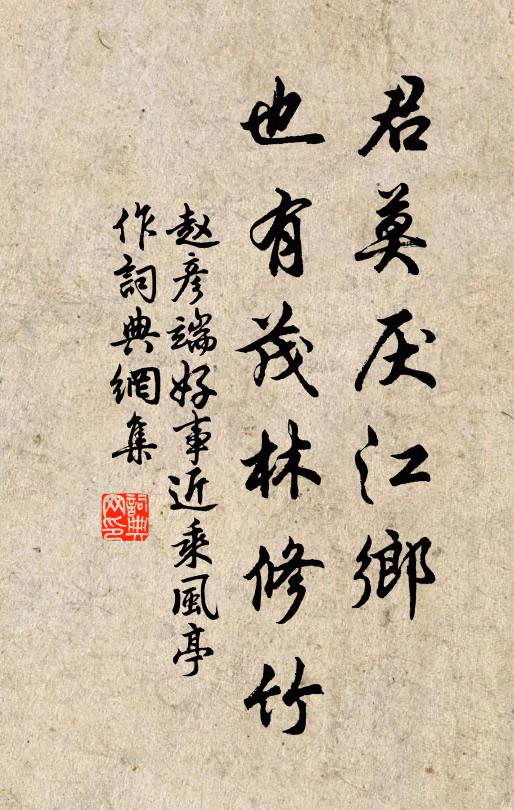 君莫厌江鄉
也有茂林修竹
赵彦端好事近乘風亭
作詞典網集
詞典
网印